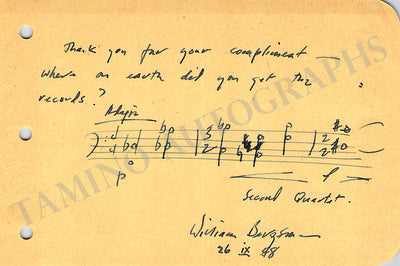 Thank you for your compliment
where on earth did you get the
records?
Adagio
Second Quartet.
William Bergsma
26 IX 48
TAMINO AUTOGRAPHS